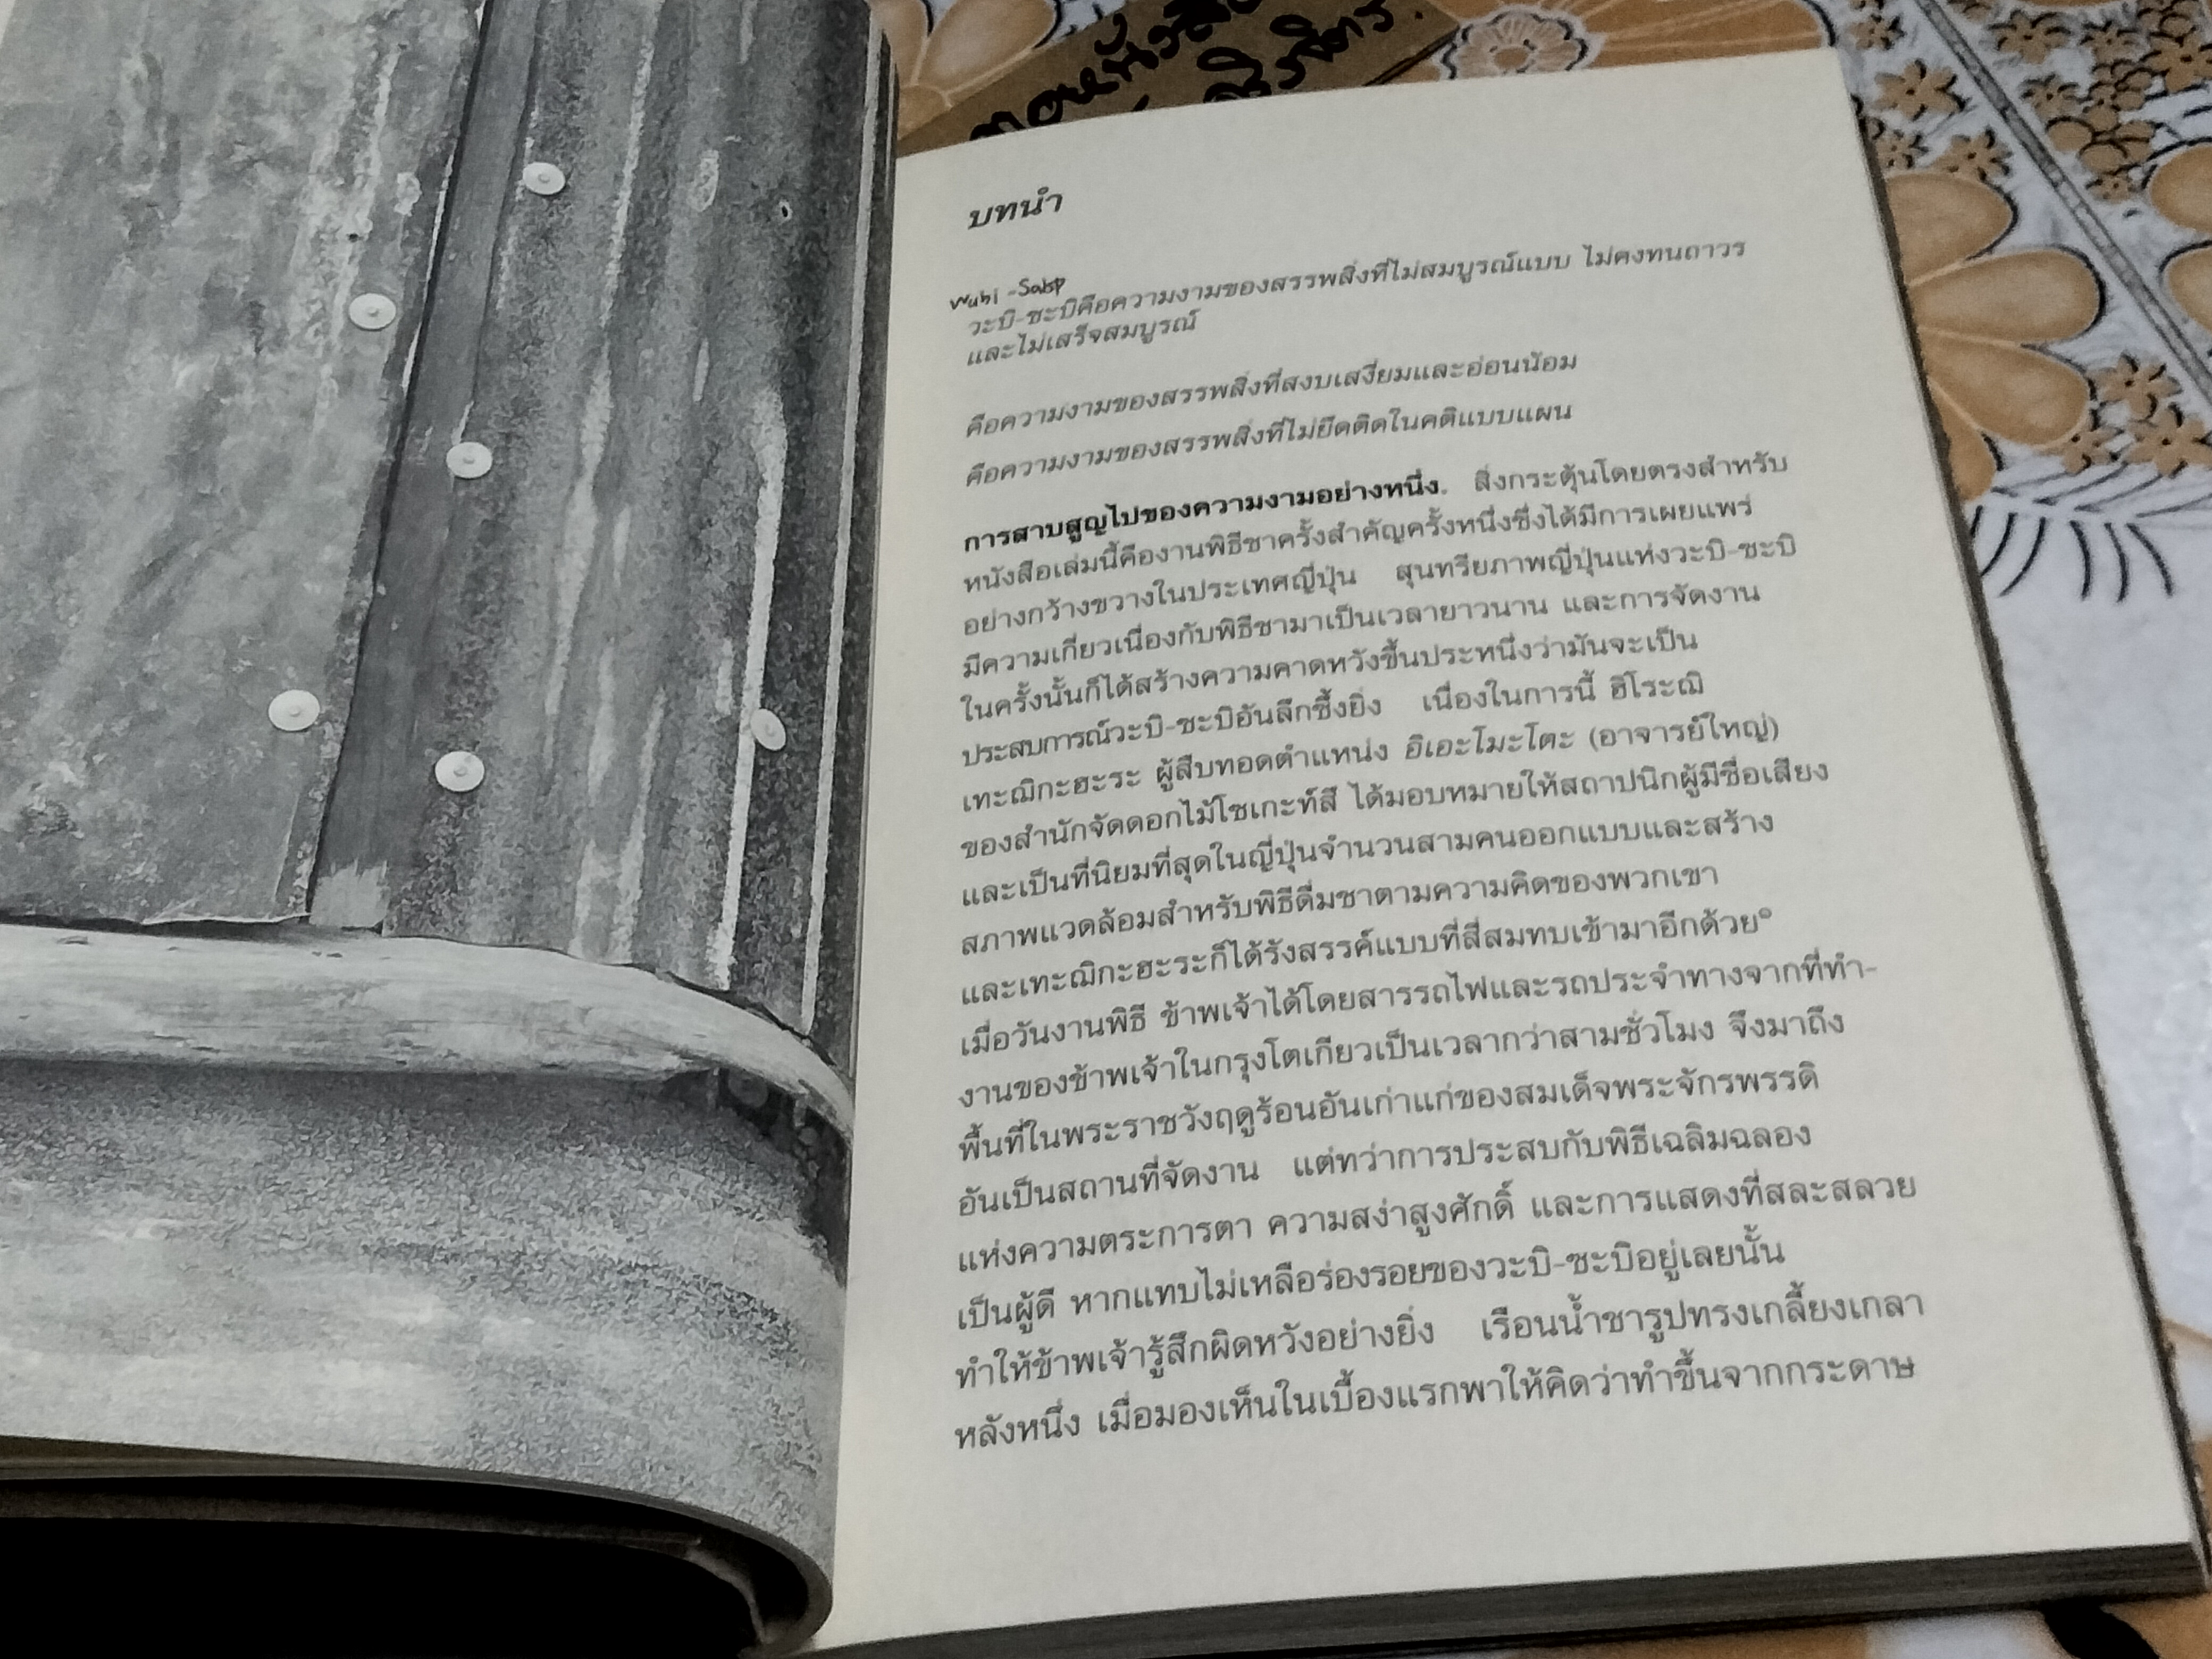 บทนำ
วะบิ-ซะบิคือความงามของสรรพสิ่งที่ไม่สมบูรณ์แบบ ไม่คงทนถาวร
และไม่เสร็จสมบูรณ์
คือความงามของสรรพสิ่งที่สงบเสงี่ยมและอ่อนน้อม
คือความงามของสรรพสิ่งที่ไม่ยึดติดในคติแบบแผน
การสาบสูญไปของความงามอย่างหนึ่ง. สิ่งกระตุ้นโดยตรงสำหรับ
หนังสือเล่มนี้คืองานพิธีชาครั้งสำคัญครั้งหนึ่งซึ่งได้มีการเผยแพร่
อย่างกว้างขวางในประเทศญี่ปุ่น สุนทรียภาพญี่ปุ่นแห่งวะบิ-ซะบิ
มีความเกี่ยวเนื่องกับพิธีชามาเป็นเวลายาวนาน และการจัดงาน
ในครั้งนั้นก็ได้สร้างความคาดหวังขึ้นประหนึ่งว่ามันจะเป็น
ประสบการณ์วะบิ-ซะบิอันลึกซึ้งยิ่ง เนื่องในการนี้ ฮิโระฌิ
เทะฌิกะฮะระ ผู้สืบทอดตำแหน่ง อิเอะโมะโตะ (อาจารย์ใหญ่)
ของสำนักจัดดอกไม้โซเกะท์สึ ได้มอบหมายให้สถาปนิกผู้มีชื่อเสียง
และเป็นที่นิยมที่สุดในญี่ปุ่นจำนวนสามคนออกแบบและสร้าง
สภาพแวดล้อมสำหรับพิธีดื่มชาตามความคิดของพวกเขา
และเทะฌิกะฮะระก็ได้รังสรรค์แบบที่สี่สมทบเข้ามาอีกด้วย๐
เมื่อวันงานพิธี ข้าพเจ้าได้โดยสารรถไฟและรถประจำทางจากที่ทำ-
งานของข้าพเจ้าในกรุงโตเกียวเป็นเวลากว่าสามชั่วโมง จึงมาถึง
พื้นที่ในพระราชวังฤดูร้อนอันเก่าแก่ของสมเด็จพระจักรพรรดิ
อันเป็นสถานที่จัดงาน แต่ทว่าการประสบกับพิธีเฉลิมฉลอง
แห่งความตระการตา ความสง่าสูงศักดิ์ และการแสดงที่สละสลวย
เป็นผู้ดี หากแทบไม่เหลือร่องรอยของวะบิ-ซะบิอยู่เลยนั้น
ทำให้ข้าพเจ้ารู้สึกผิดหวังอย่างยิ่ง เรือนน้ำชารูปทรงเกลี้ยงเกลา
หลังหนึ่ง เมื่อมองเห็นในเบื้องแรกพาให้คิดว่าทำขึ้นจากกระดาษ